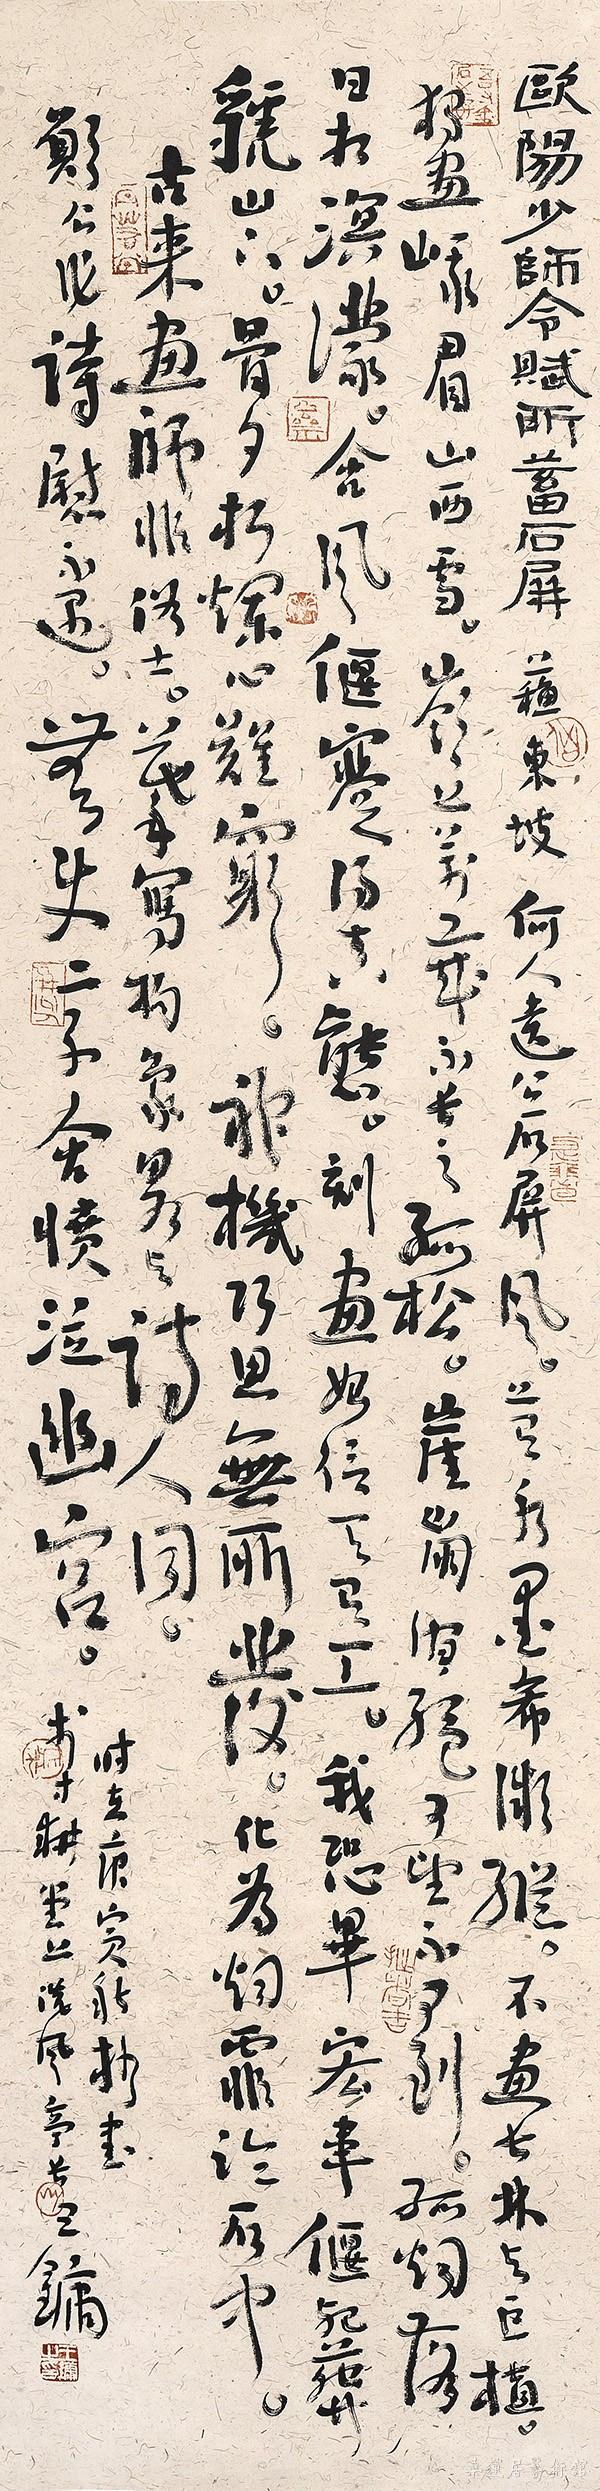 歐陽少師令賦所蓄石屏 蘇東坡 何人遺公石屏風。上有水墨希微蹤。不畫長林與巨植。
獨畫峨眉山西雪。嶺上萬歲不老之孤松。崖崩澗絕可望不可到。孤烟落
日相溟濛。含風偃蹇得真態。刻畫始信天有工。我恐畢宏韋偃死葬
虢山下。骨可朽爛心難窮。神機巧思無所發。化為烟霏淪石中。
古來畫師非俗士。摹寫物象略與詩人同。
願公作詩慰不遇。無使二子含憤泣幽宮。
時在庚寅秋抄書
於寸耕堂上洗風亭 鏞